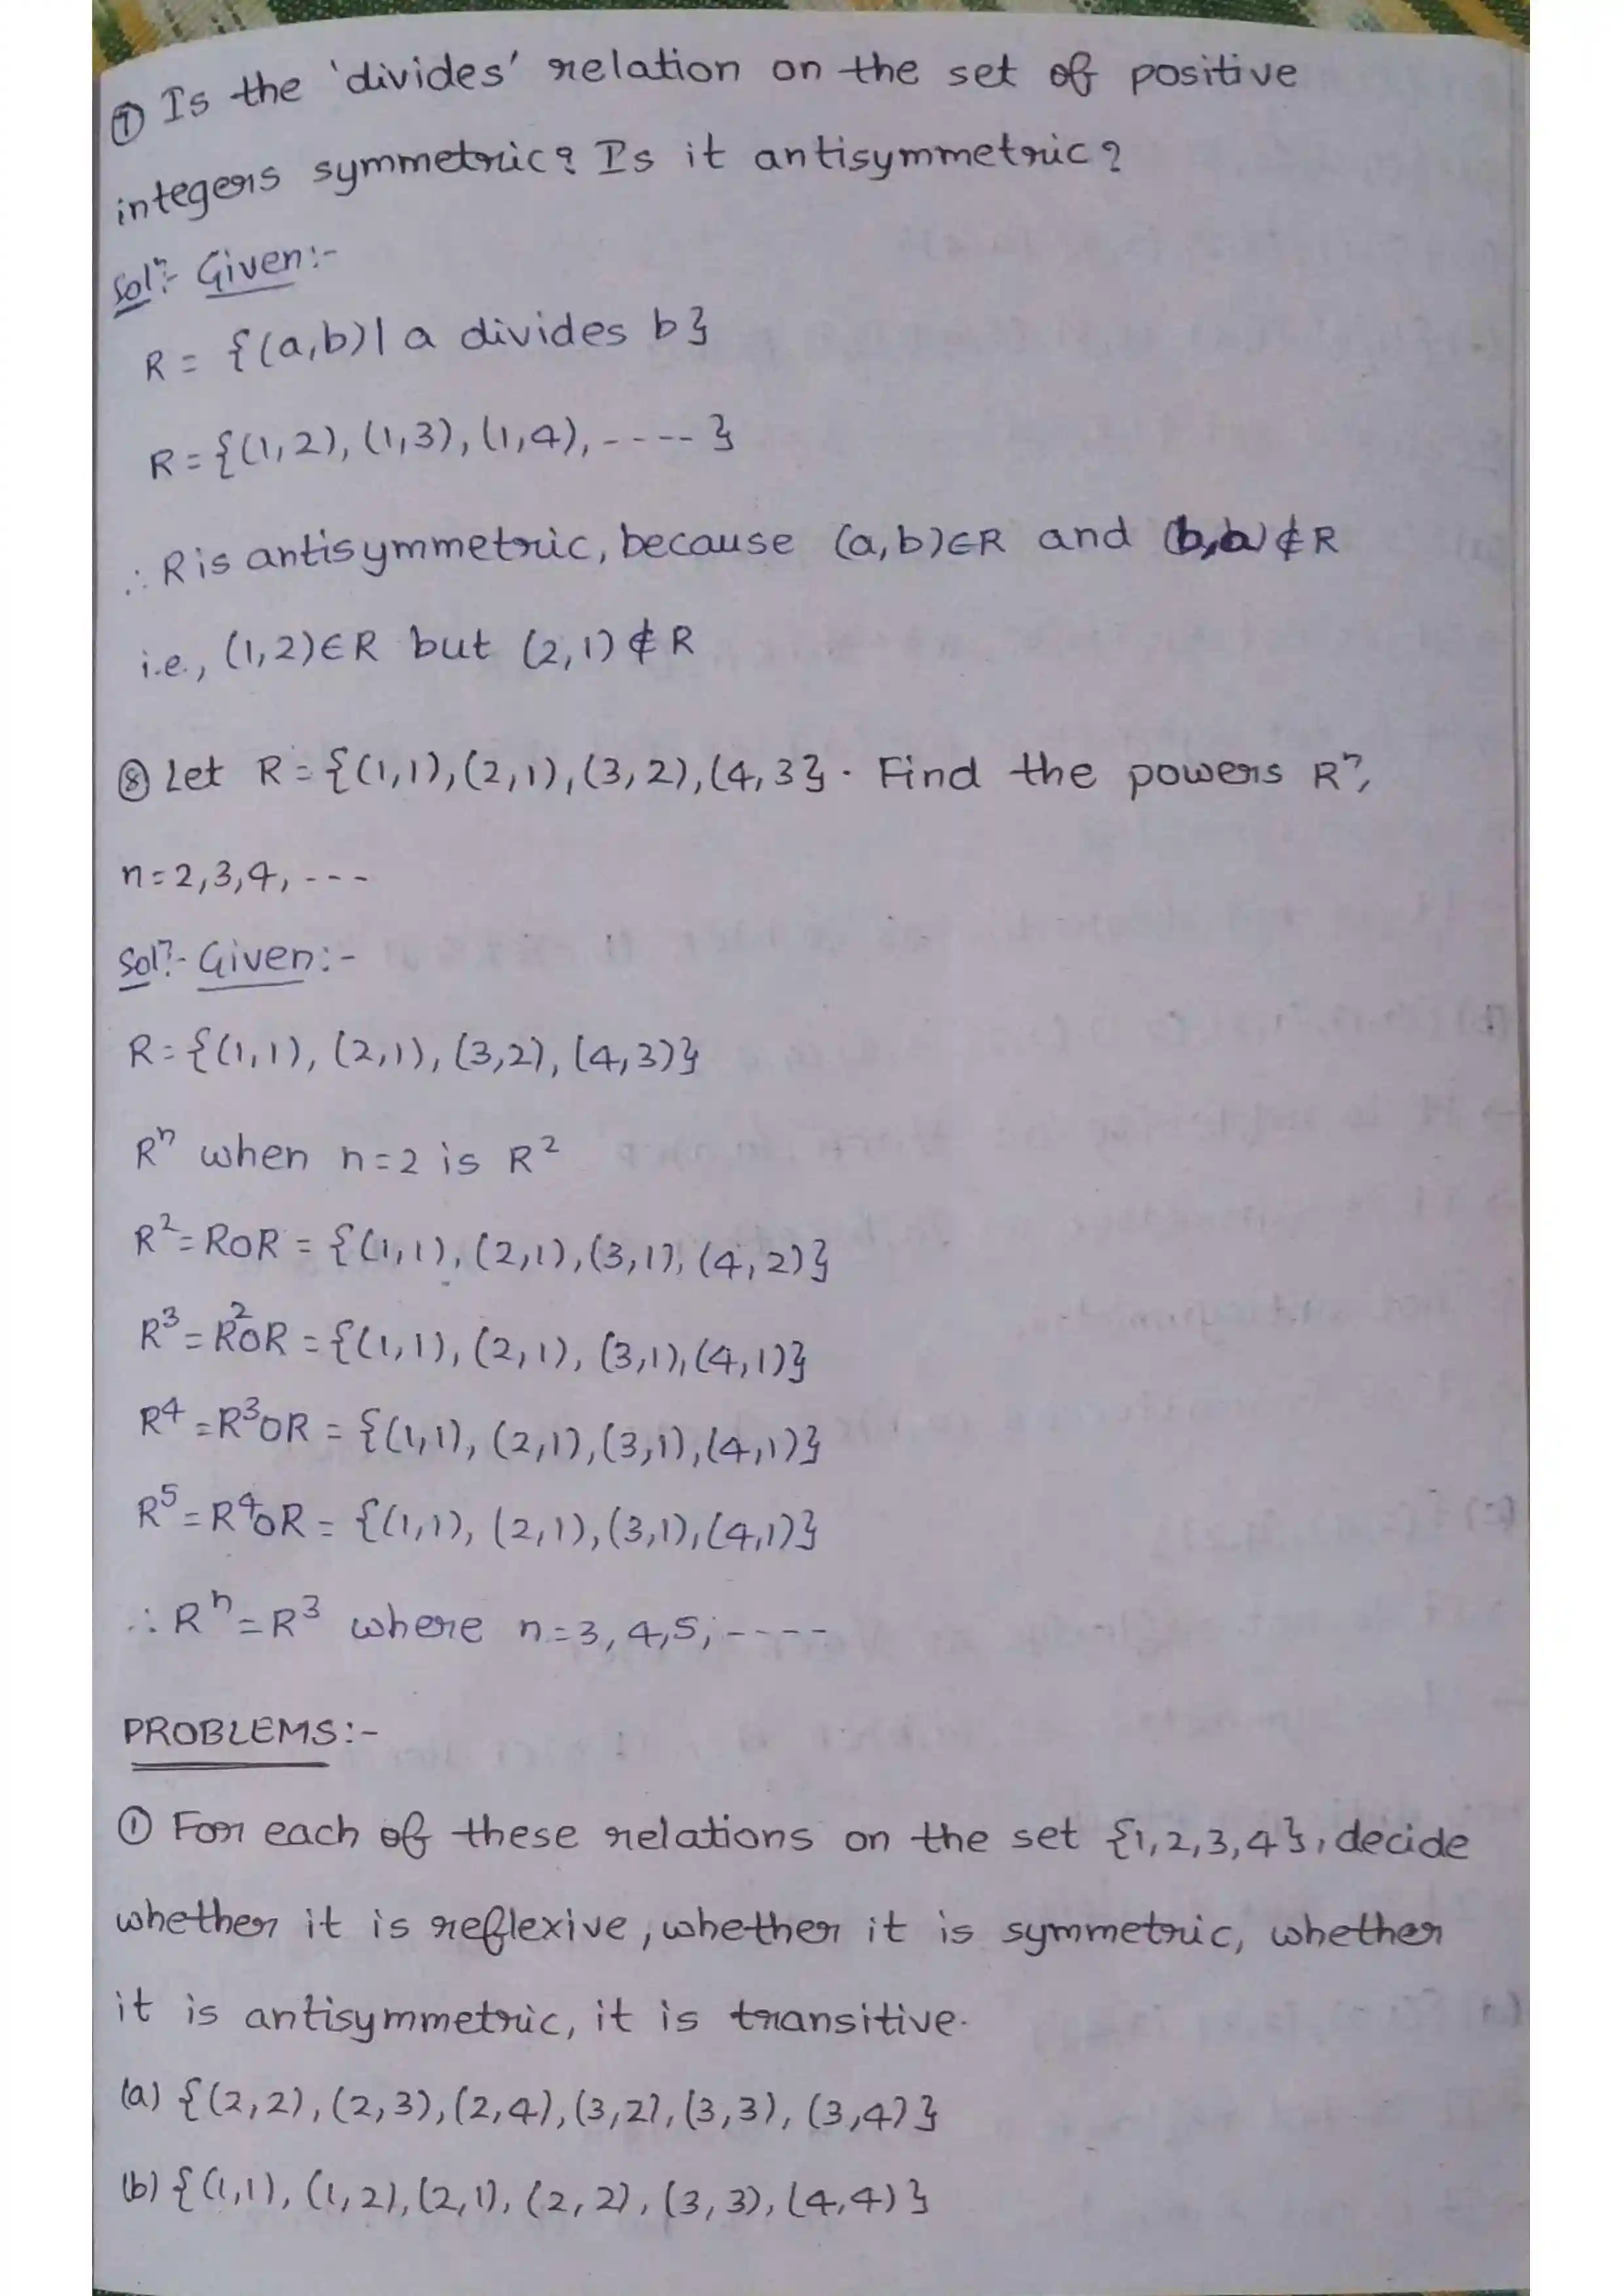 ⑦ Is the 'divides' relation on the set of positive
integers symmetric? Is it antisymmetric?
Solⁿ:- Given:-
R = {(a,b)| a divides b}
R = {(1,2), (1,3), (1,4), ---- }
∴ R is antisymmetric, because (a,b)∈R and (b,a)∉R
i.e., (1,2)∈R but (2,1)∉R
⑧ Let R = {(1,1), (2,1), (3,2), (4,3}. Find the powers Rⁿ,
n=2,3,4, ---
Solⁿ:- Given:-
R = {(1,1), (2,1), (3,2), (4,3)}
Rⁿ when n=2 is R²
R² = R∘R = {(1,1), (2,1), (3,1), (4,2)}
R³ = R²∘R = {(1,1), (2,1), (3,1), (4,1)}
R⁴ = R³∘R = {(1,1), (2,1), (3,1), (4,1)}
R⁵ = R⁴∘R = {(1,1), (2,1), (3,1), (4,1)}
∴ Rⁿ = R³ where n=3,4,5, ----
PROBLEMS:-
① For each of these relations on the set {1,2,3,4}, decide
whether it is reflexive, whether it is symmetric, whether
it is antisymmetric, it is transitive.
(a) {(2,2), (2,3), (2,4), (3,2), (3,3), (3,4)}
(b) {(1,1), (1,2), (2,1), (2,2), (3,3), (4,4)}